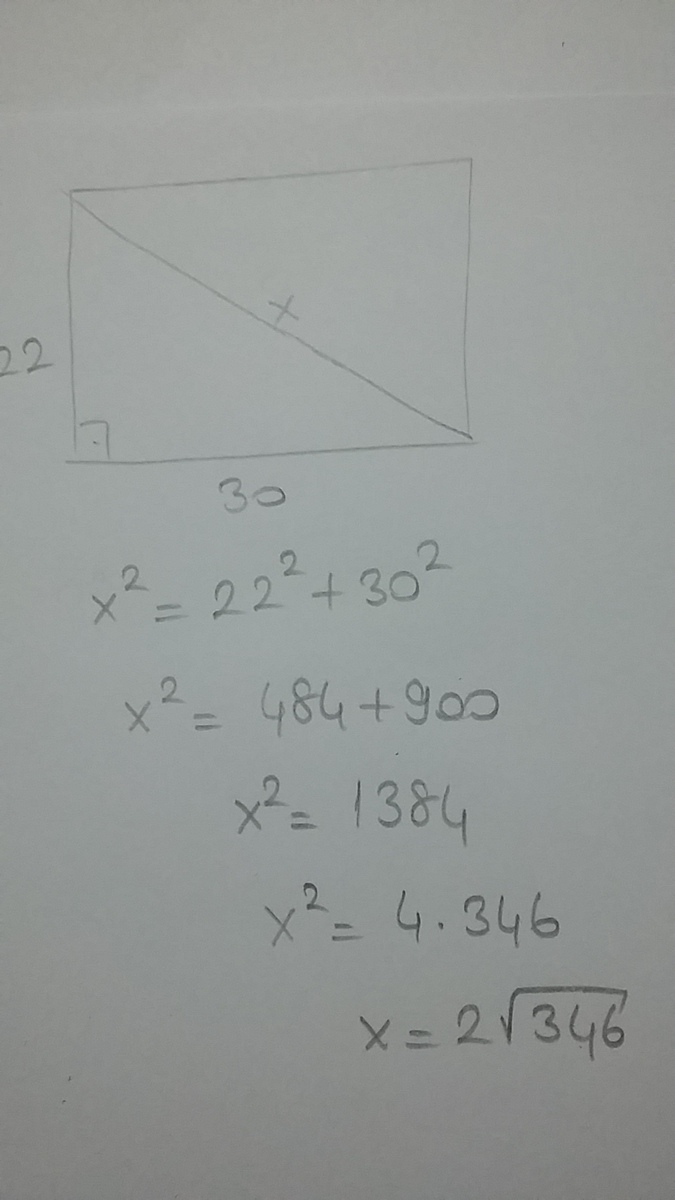 x
22
30
x² = 22² + 30²
x² = 484 + 900
x² = 1384
x² = 4 . 346
x = 2√346